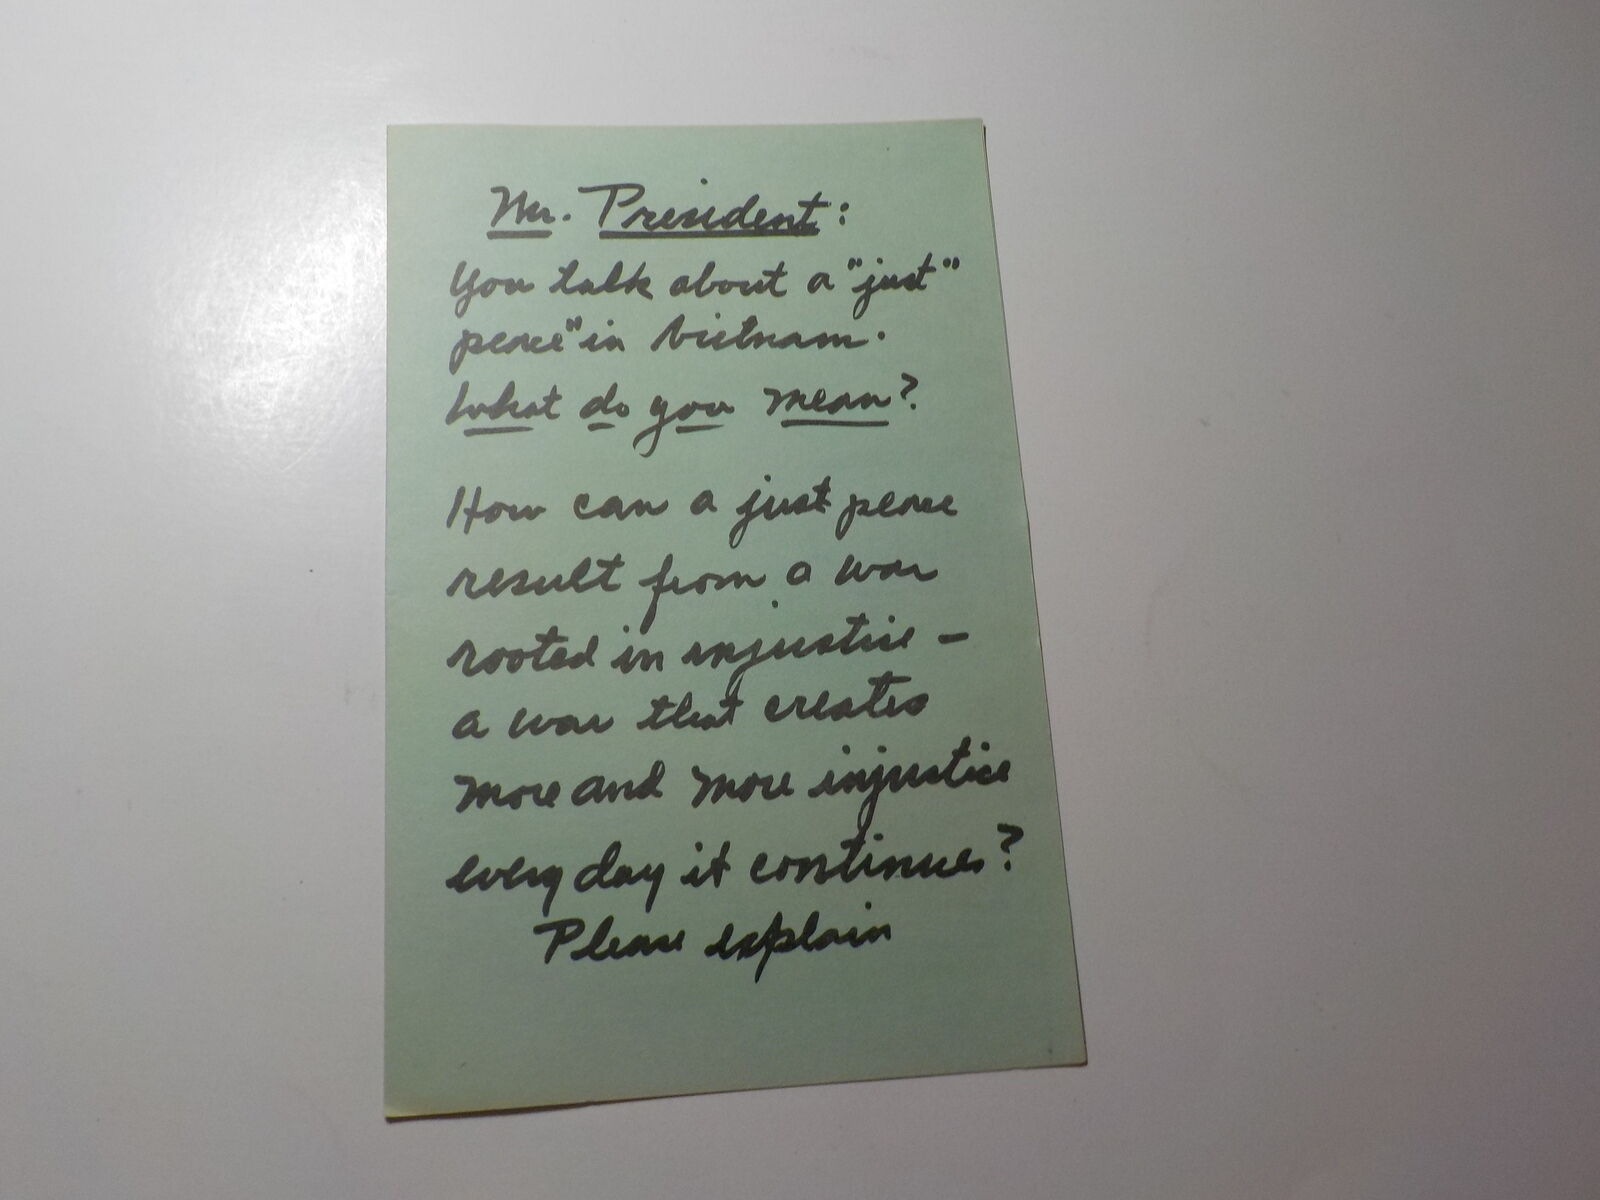 Mr. President:
You talk about a "just"
peace" in Vietnam.
What do you mean?
How can a just peace
result from a war
rooted in injustice -
a war that creates
more and more injustice
every day it continues?
Please explain